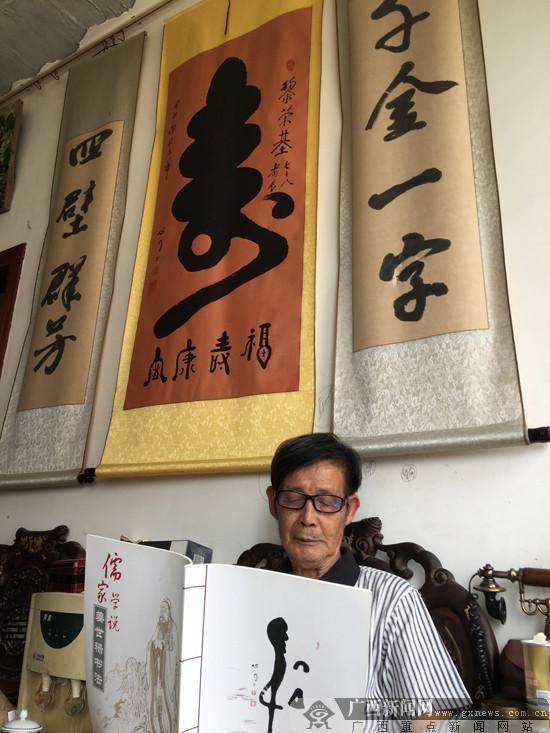 千金一字
黎荣基七十八
寿
福寿康
四壁群芳
儒家
学说
书法
广西新闻网
www.gxnews.com.cn
广西重点新闻网站